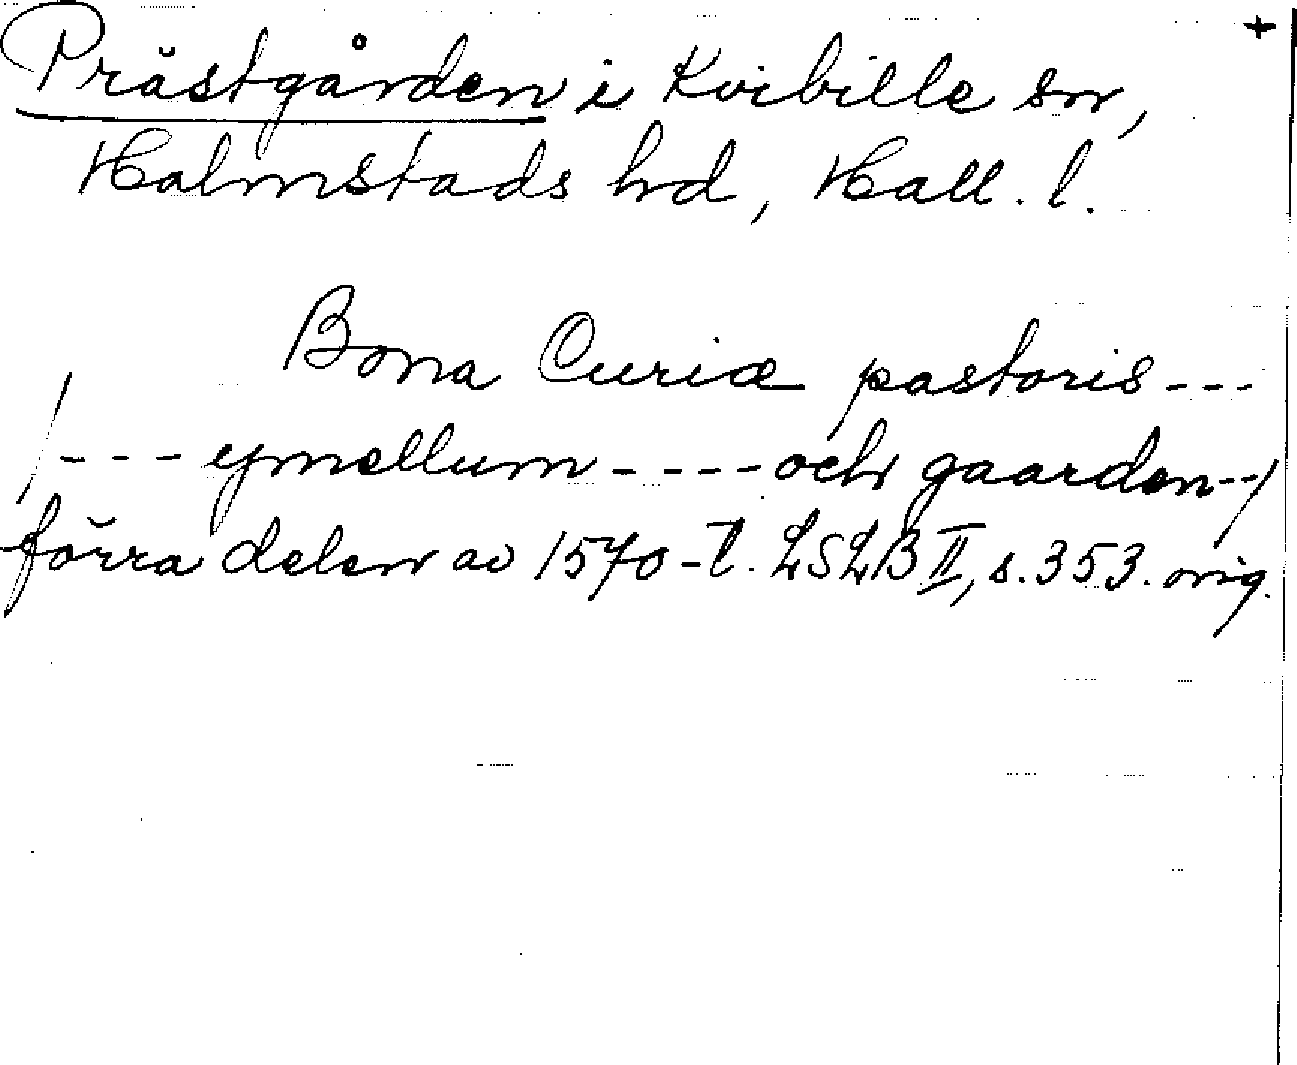 +
Prästgården i Kvibille sn,
Halmstads hd, Hall. l.
Bona Curiæ pastoris ---
/--- ymellum ---- och gaarden--/
förra delen av 1570-t. LSLB II, s. 353. orig.